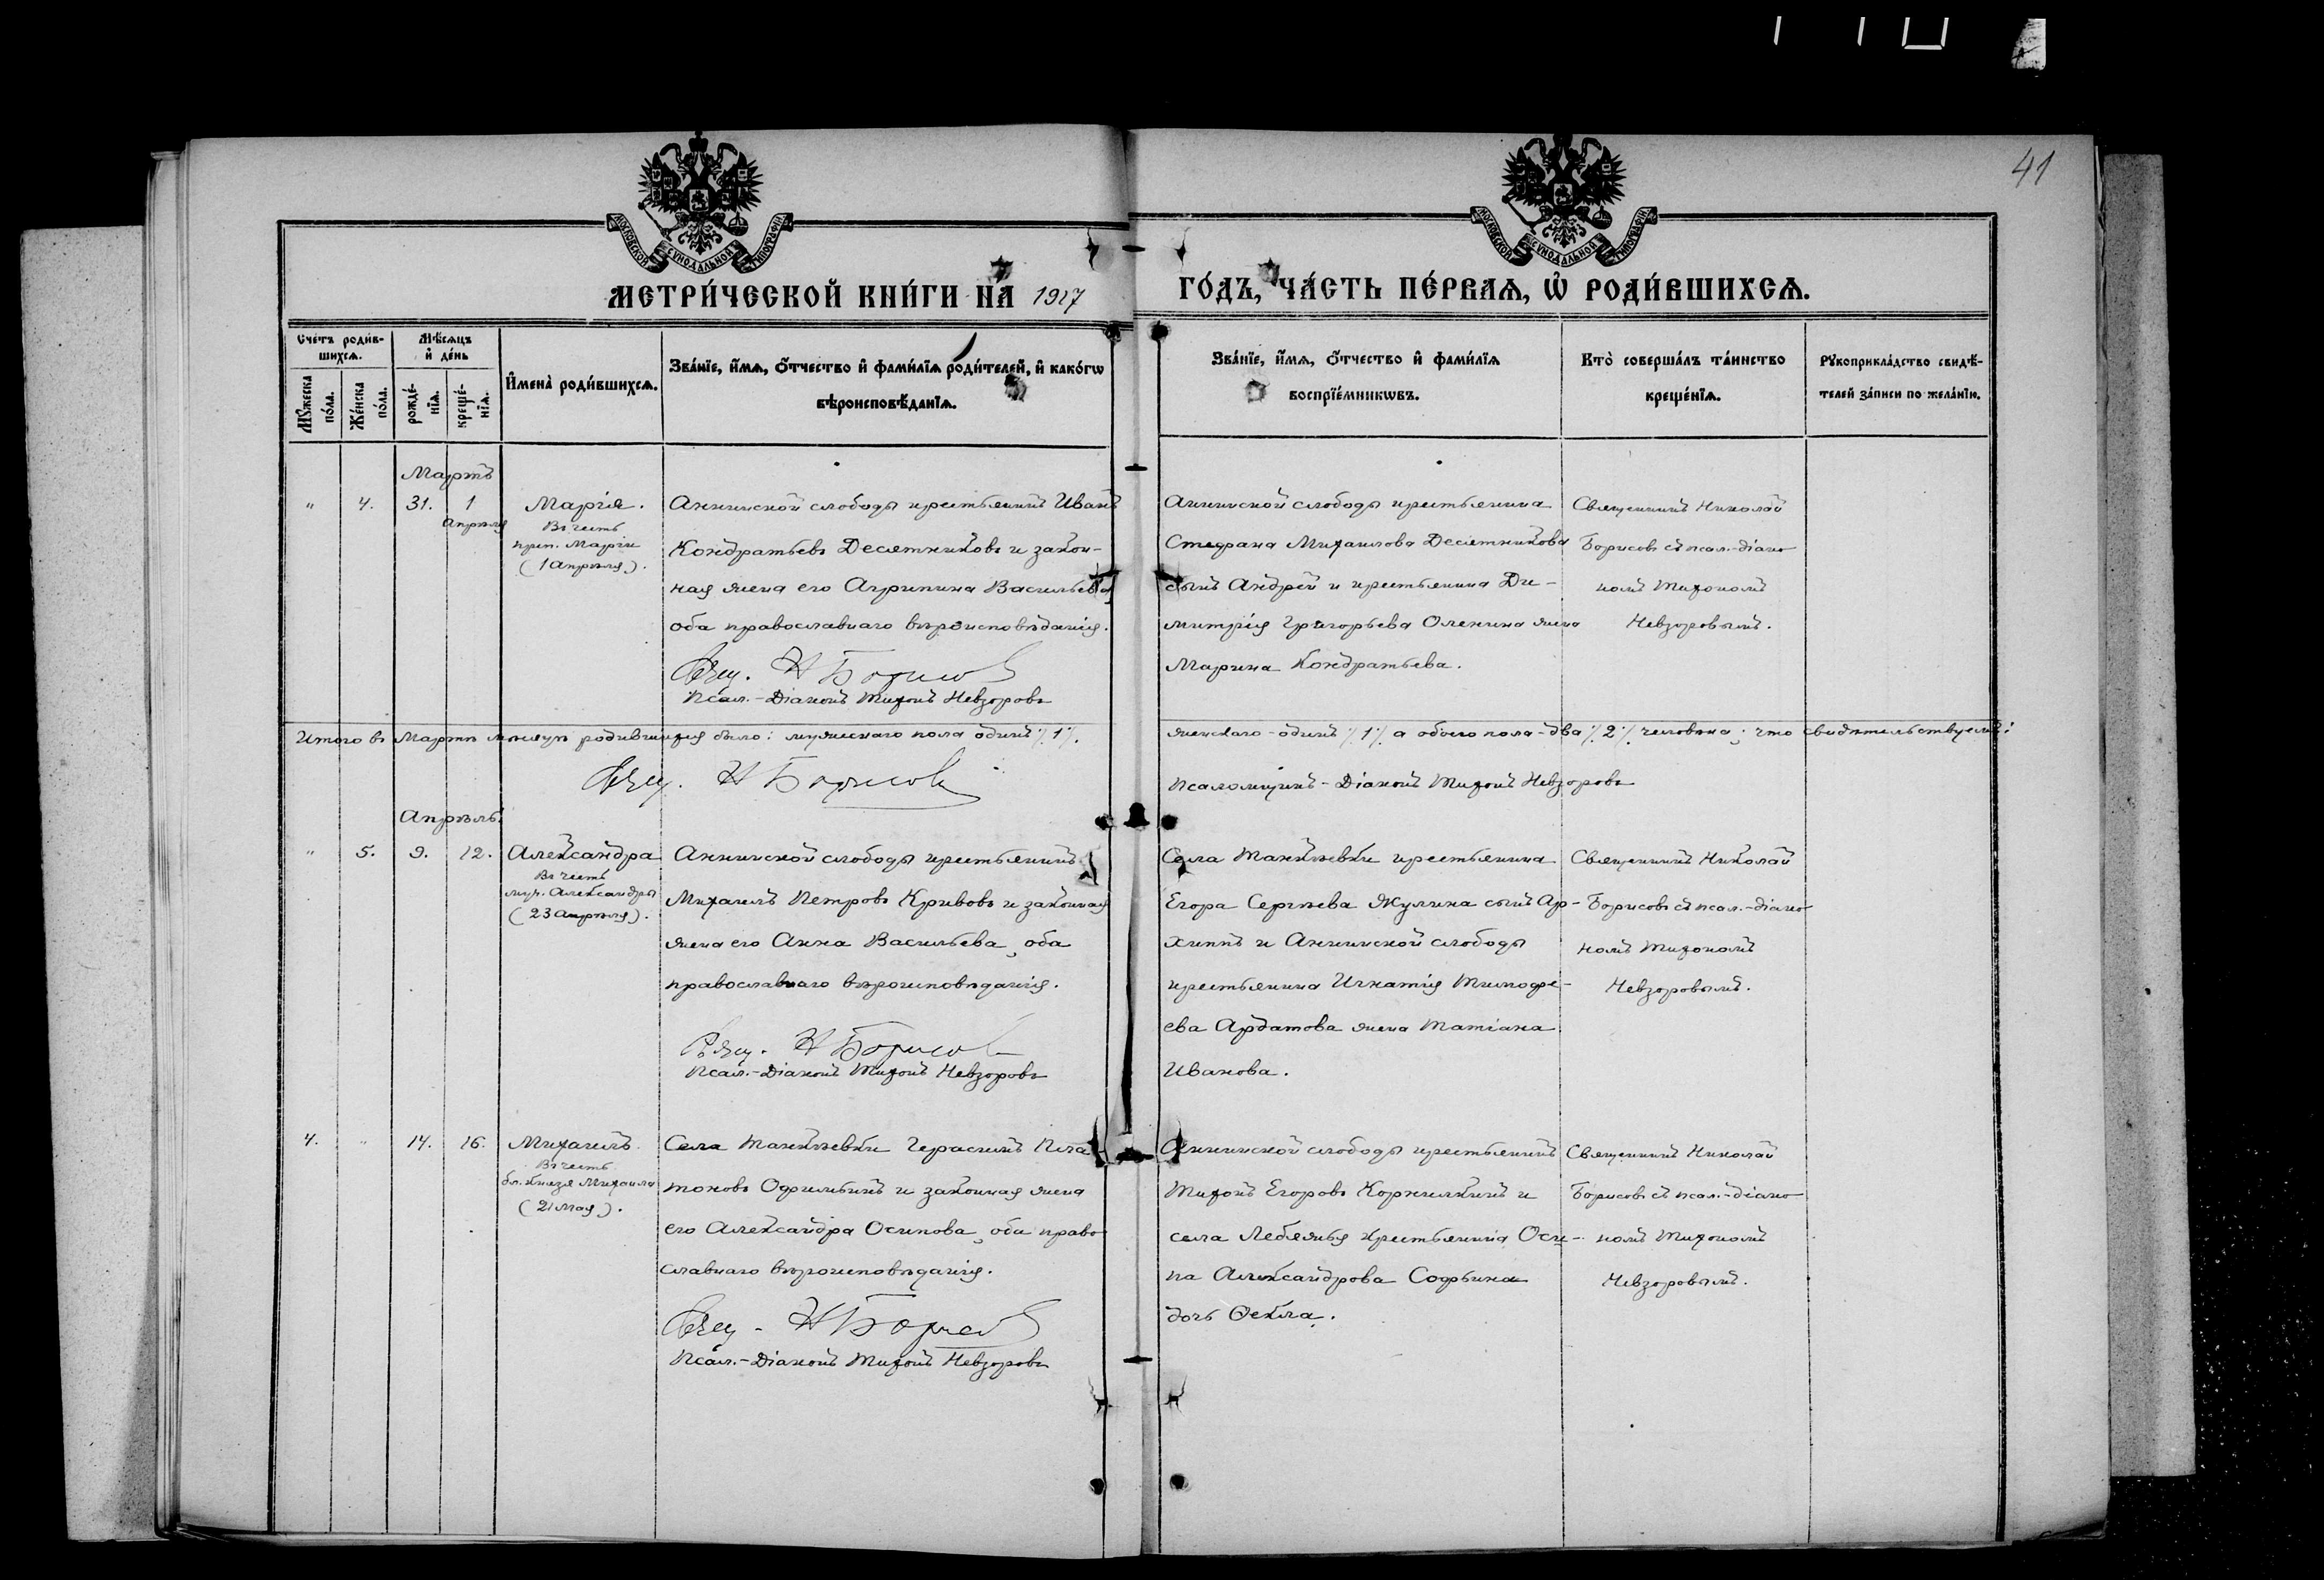 41
МОСКОВСКОЙ СУНОДАЛЬНОЙ ТИПОГРАФІИ
МОСКОВСКОЙ СУНОДАЛЬНОЙ ТИПОГРАФІИ
МЕТРИ́ЧЕСКОЙ КНИ́ГИ НА̀ 1917 ГО́ДЪ, ЧА́СТЬ ПЕ́РВАѦ, Ѡ҆ РОДИ́ВШИХСѦ.
Счетъ роди́в-
шихсѧ.
Мꙋ́жеска по́ла.
Же́нска по́ла.
Мѣ́сѧцъ и҆ де́нь
рожде́-нїѧ.
креще́-нїѧ.
И҆мена̀ роди́вшихсѧ.
Зва́нїе, и҆́мѧ, ѻ҆́тчество и҆ фами́лїѧ роди́телей, и҆ како́гѡ
вѣроисповѣ́данїѧ.
Зва́нїе, и҆́мѧ, ѻ҆́тчество и҆ фами́лїѧ
воспрїе́мникѡвъ.
Кто̀ соверша́лъ та́инство
креще́нїѧ.
Рꙋкоприкла́дство свидѣ́-
телей за́писи по жела́нїю.
Мартъ
" 4. 31. 1
Апрѣля
Марія.
Въ честь
преп. Маріи
(1 Апрѣля).
Аннинской слободы крестьянинъ Иванъ
Кондратьевъ Десятниковъ и закон-
ная жена его Агрипина Васильева,
оба православнаго вѣроисповѣданія.
Свящ. Н Борисов
Псал.-Діаконъ Тихонъ Невзоровъ
Аннинской слободы крестьянина
Стефана Михаилова Десятникова
сынъ Андрей и крестьянина Ди-
митрія Григорьева Оленина жена
Марина Кондратьева.
Священникъ Николай
Борисовъ съ псал.-діако-
номъ Тихономъ
Невзоровымъ.
Итого въ Мартѣ мѣсяцѣ родившихся было: мужескаго пола одинъ ٪ 1 ٪, женскаго - одинъ ٪ 1 ٪ а обоего пола - два ٪ 2 ٪ человѣка; что свидѣтельствуемъ:
Свящ. Н Борисовъ
Псаломщикъ-Діаконъ Тихонъ Невзоровъ
Апрѣль.
" 5. 9. 12.
Александра
Въ честь
муч. Александры
(23 Апрѣля).
Аннинской слободы крестьянинъ
Михаилъ Петровъ Кривовъ и законная
жена его Анна Васильева, оба
православнаго вѣроисповѣданія.
Свящ. Н Борисов
Псал.-Діаконъ Тихонъ Невзоровъ
Села крестьянина
Егора Сергѣева Жулина сынъ Ар-
хиппъ и Аннинской слободы
крестьянина Игнатія Тимофе-
ева Ардатова жена Татіана
Иванова.
Священникъ Николай
Борисовъ съ псал.-діако-
номъ Тихономъ
Невзоровымъ.
4. " 14. 16.
Михаилъ
Въ честь
бл. князя Михаила
(21 Мая).
Села Герасимъ Пла-
тоновъ и законная жена
его Александра Осипова, оба право-
славнаго вѣроисповѣданія.
Свящ. Н Борисов
Псал.-Діаконъ Тихонъ Невзоровъ
Аннинской слободы крестьянинъ
Тихонъ Егоровъ Корнилкинъ и
села Лебяжья крестьянина Оси-
па Александрова Софьина
дочь Ѳекла.
Священникъ Николай
Борисовъ съ псал.-діако-
номъ Тихономъ
Невзоровымъ.